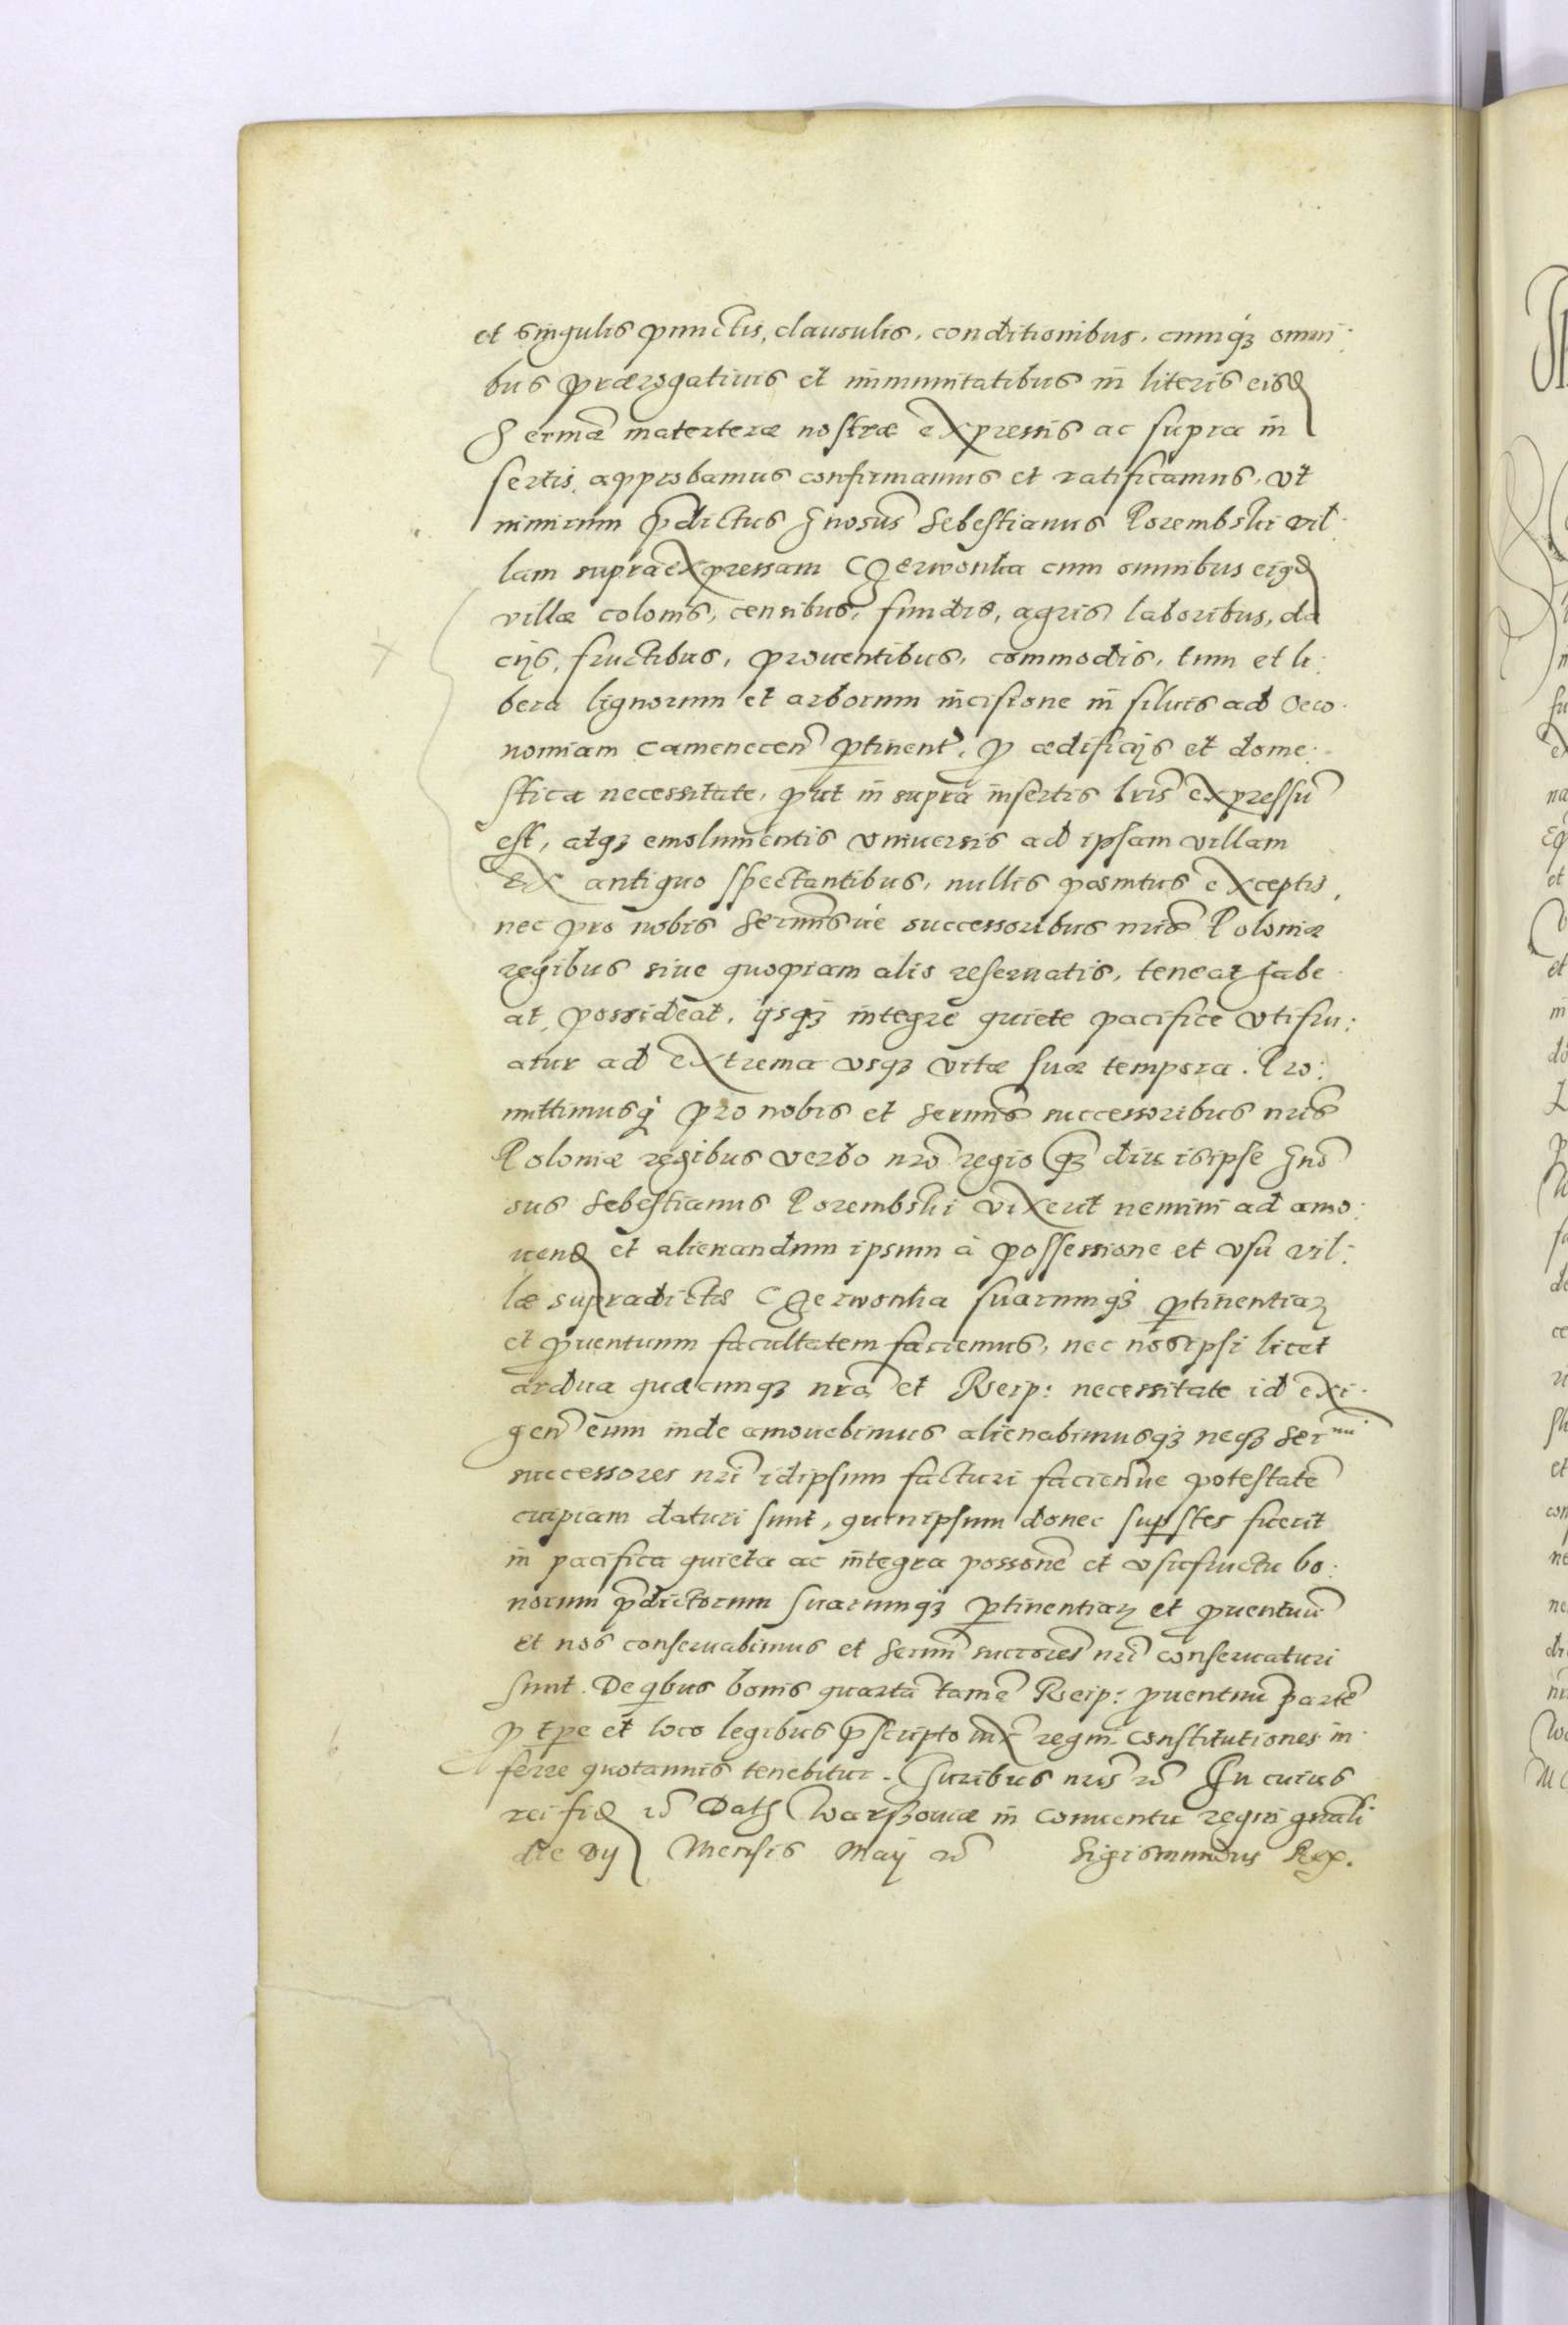 et singulis punctis, clausulis, conditionibus, cumq₃ omni:
bus prærogatiuis et immunitatibus in literis eisd
Sermæ materteræ nostræ expressis ac supra in
sertis, approbamus confirmamus et ratificamus, vt
nimirum p̄dictus Gnosus̄ Sebestianus Porembski vil:
lam supra expressam Czerwonka cum omnibus eiusd
villæ colonis, censibus, fundis, agris, laboribus, da
cijs, fructibus, prouentibus, commodis, tum et li:
bera lignorum et arborum incisione in siluis ad Oeco:
nomiam Camenecen̄ ptinent, p ædificijs et dome:
stica necessitate, put in supra insertis lris̄ expressū
est, atq₃ emolumentis vniuersis ad ipsam villam
ex antiquo spectantibus, nullis pœnitus exceptis,
nec pro nobis Sermisue successoribus nris̄ Poloniæ
regibus siue quopiam alio reseruatis, teneat habe
at, possideat, ijsq₃ integre quiete pacifice vtifru:
atur ad extrema vsq₃ vitæ suæ tempora. Pro:
mittimusq₃ pro nobis et Sermis̄ successoribus nris̄
Poloniæ regibus verbo nro̅ regio q₃ diu is ipse Gno̅
sus Sebestianus Porembski vixerit nemini ad amo:
uend et alienandum ipsum à possessione et vsu vil:
læ supradictæ Czerwonka suarumq₃ ptinentiaꝝ
et puentuum facultatem faciemus, nec nos ipsi licet
ardua quacunq₃ nrā et Reip: necessitate id exi:
gen̄ eum inde amouebimus alienabimusq₃ neq₃ Ser^mi
successores nri̅ idipsum facturi faciendiue potestatē
cuipiam daturi sunt, quin ipsum donec supstes fuerit
in pacifica quieta ac integra possone̅ et vsufructu bo:
norum p̄dictorum suarumq₃ ptinentiaꝝ et puentuū
et nos conseruabimus et Sermi̅ succores̅ nri̅ conseruaturi
sunt. De qbus bonis quartā tamē Reip: puentuū partē
p tpe et loco legibus p̄scripto iux̄ regni constitutiones in:
ferre quotannis tenebitur. Iuribus nris̄ rc̄ In cuius
rei fid rc̄ Dat₃ Warszouiæ in conuentu regni gnali̅
die Vij Mensis Maij rc̄ Sigismundus Rex.